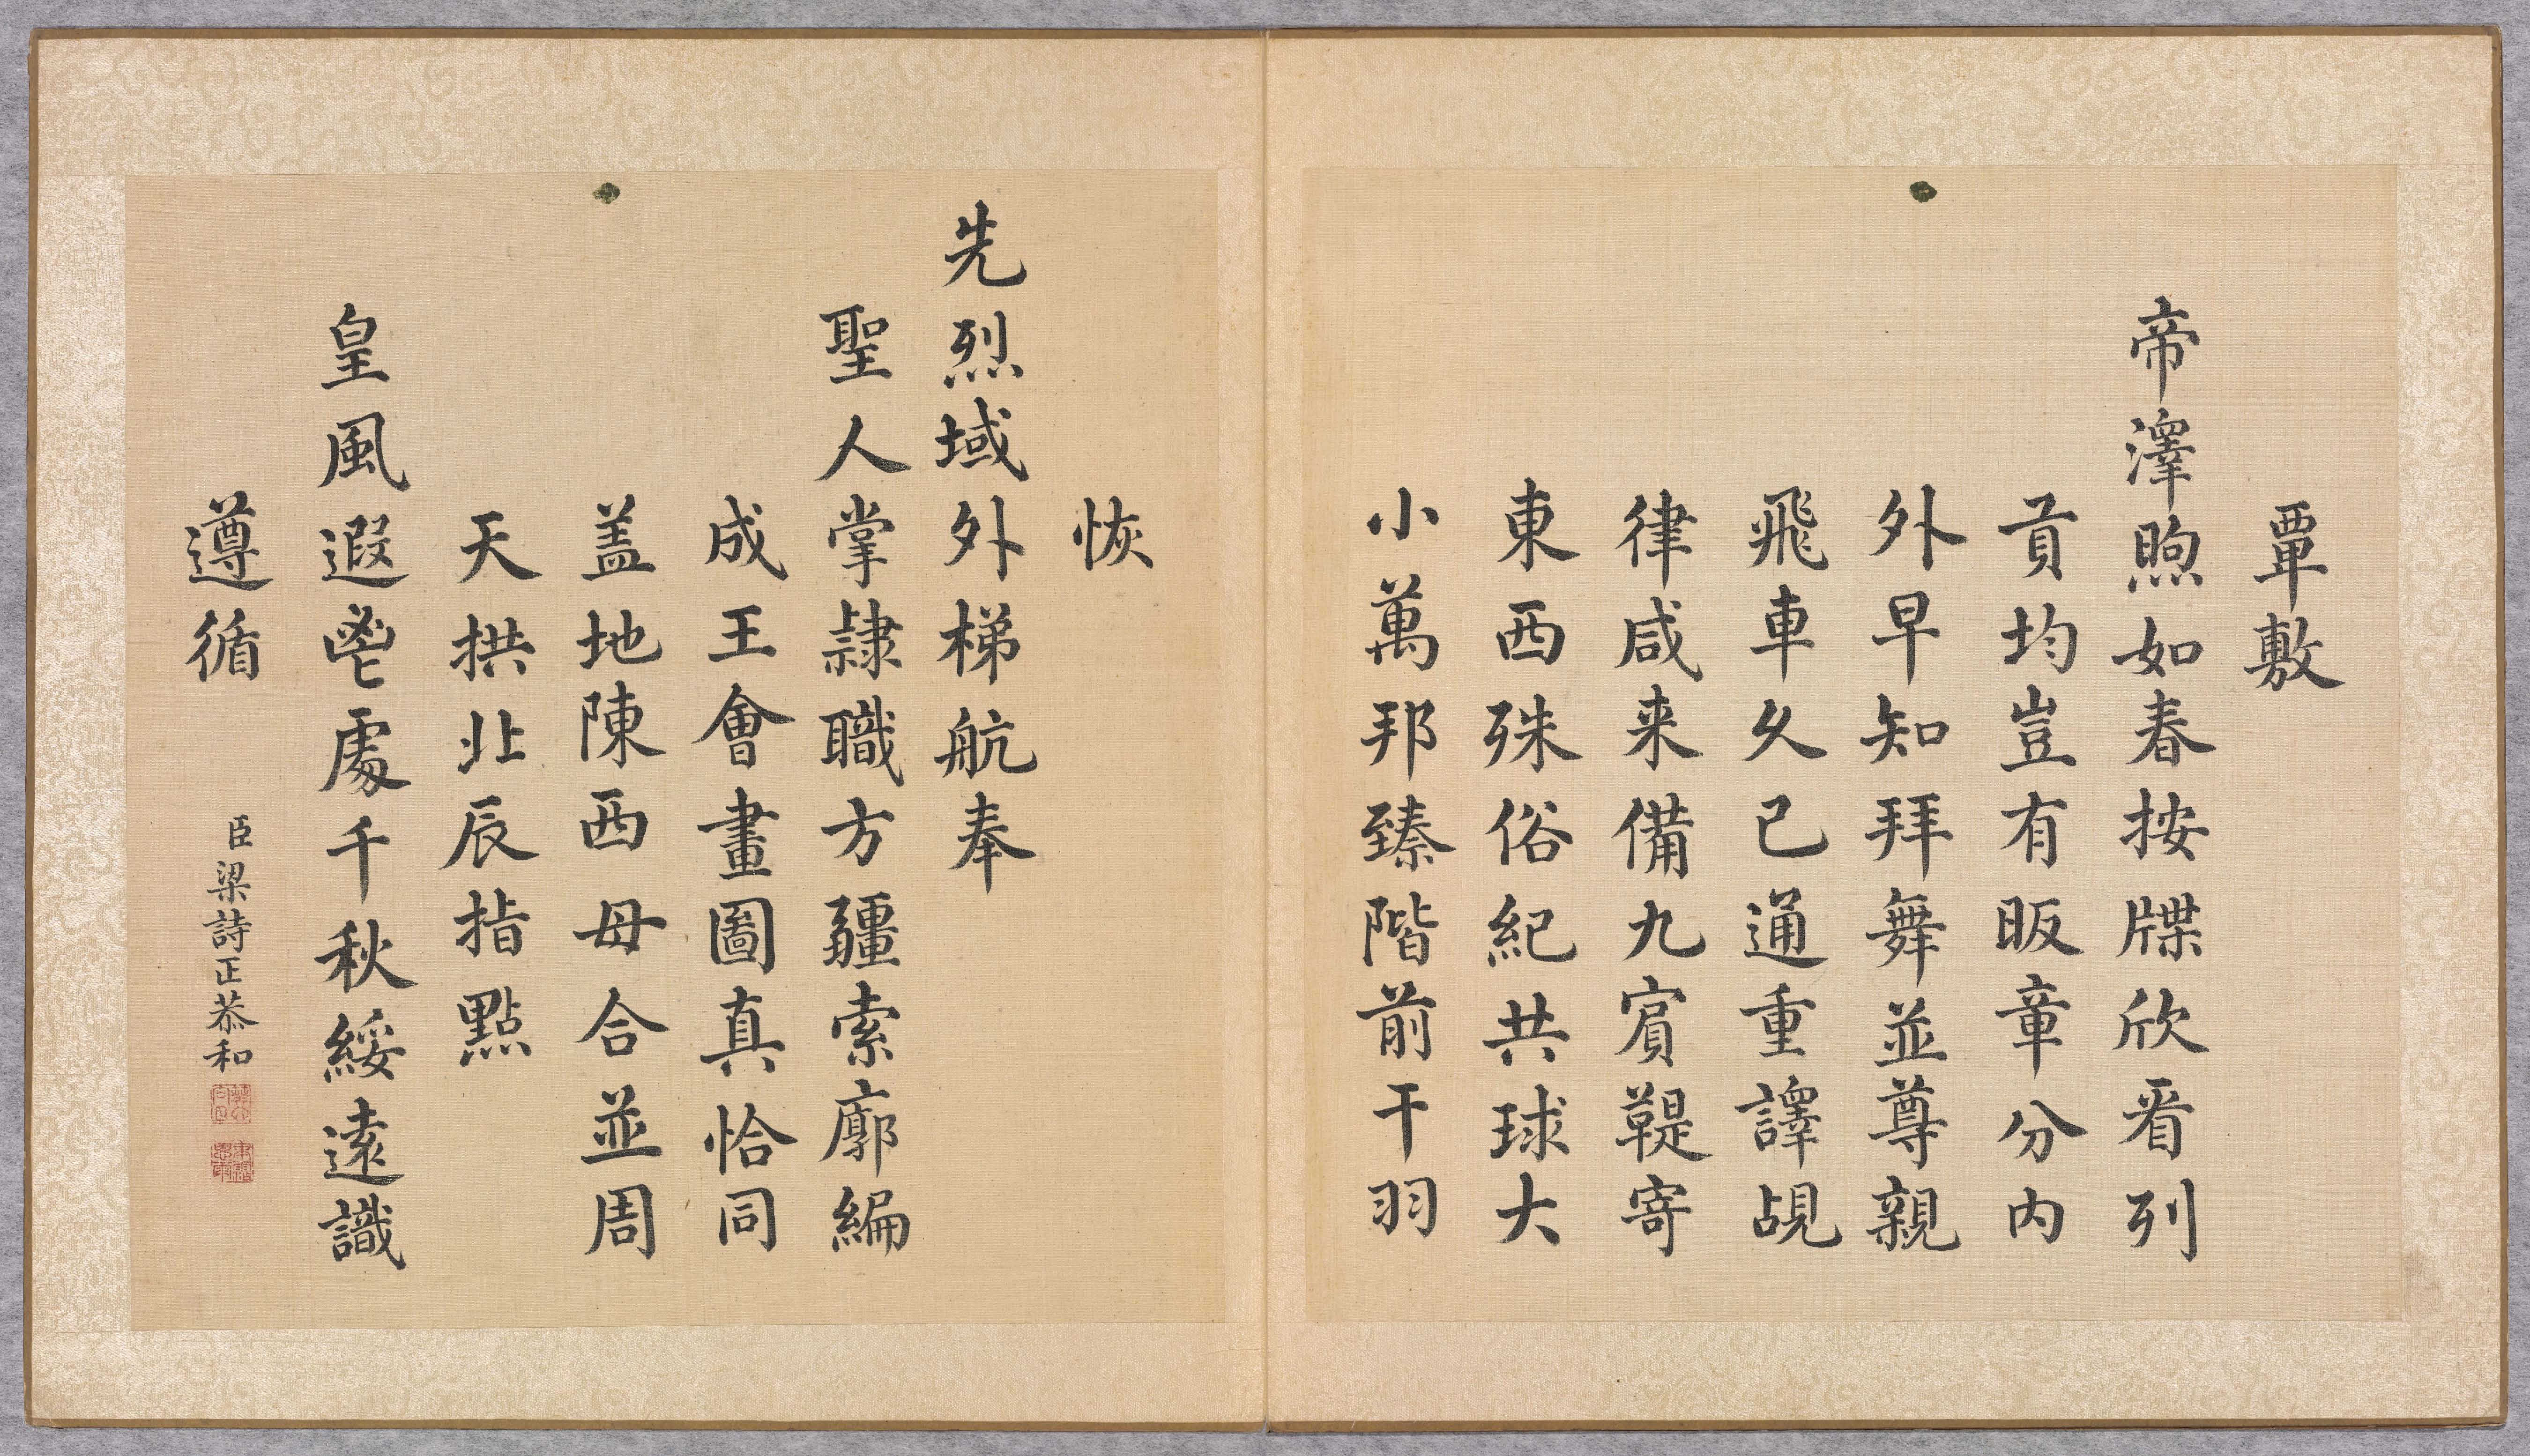 覃敷
帝澤煦如春按牒欣看列
貢均豈有昄章分内
外早知拜舞並尊親
飛車久已通重譯覘
律咸来備九賓鞮寄
東西殊俗紀共球大
小萬邦臻階前干羽
恢
先烈域外梯航奉
聖人掌隷職方疆索廓編
成王會畫圖真恰同
盖地陳西母合並周
天拱北辰指點
皇風遐鬯處千秋綏遠識
遵循
臣梁詩正恭和